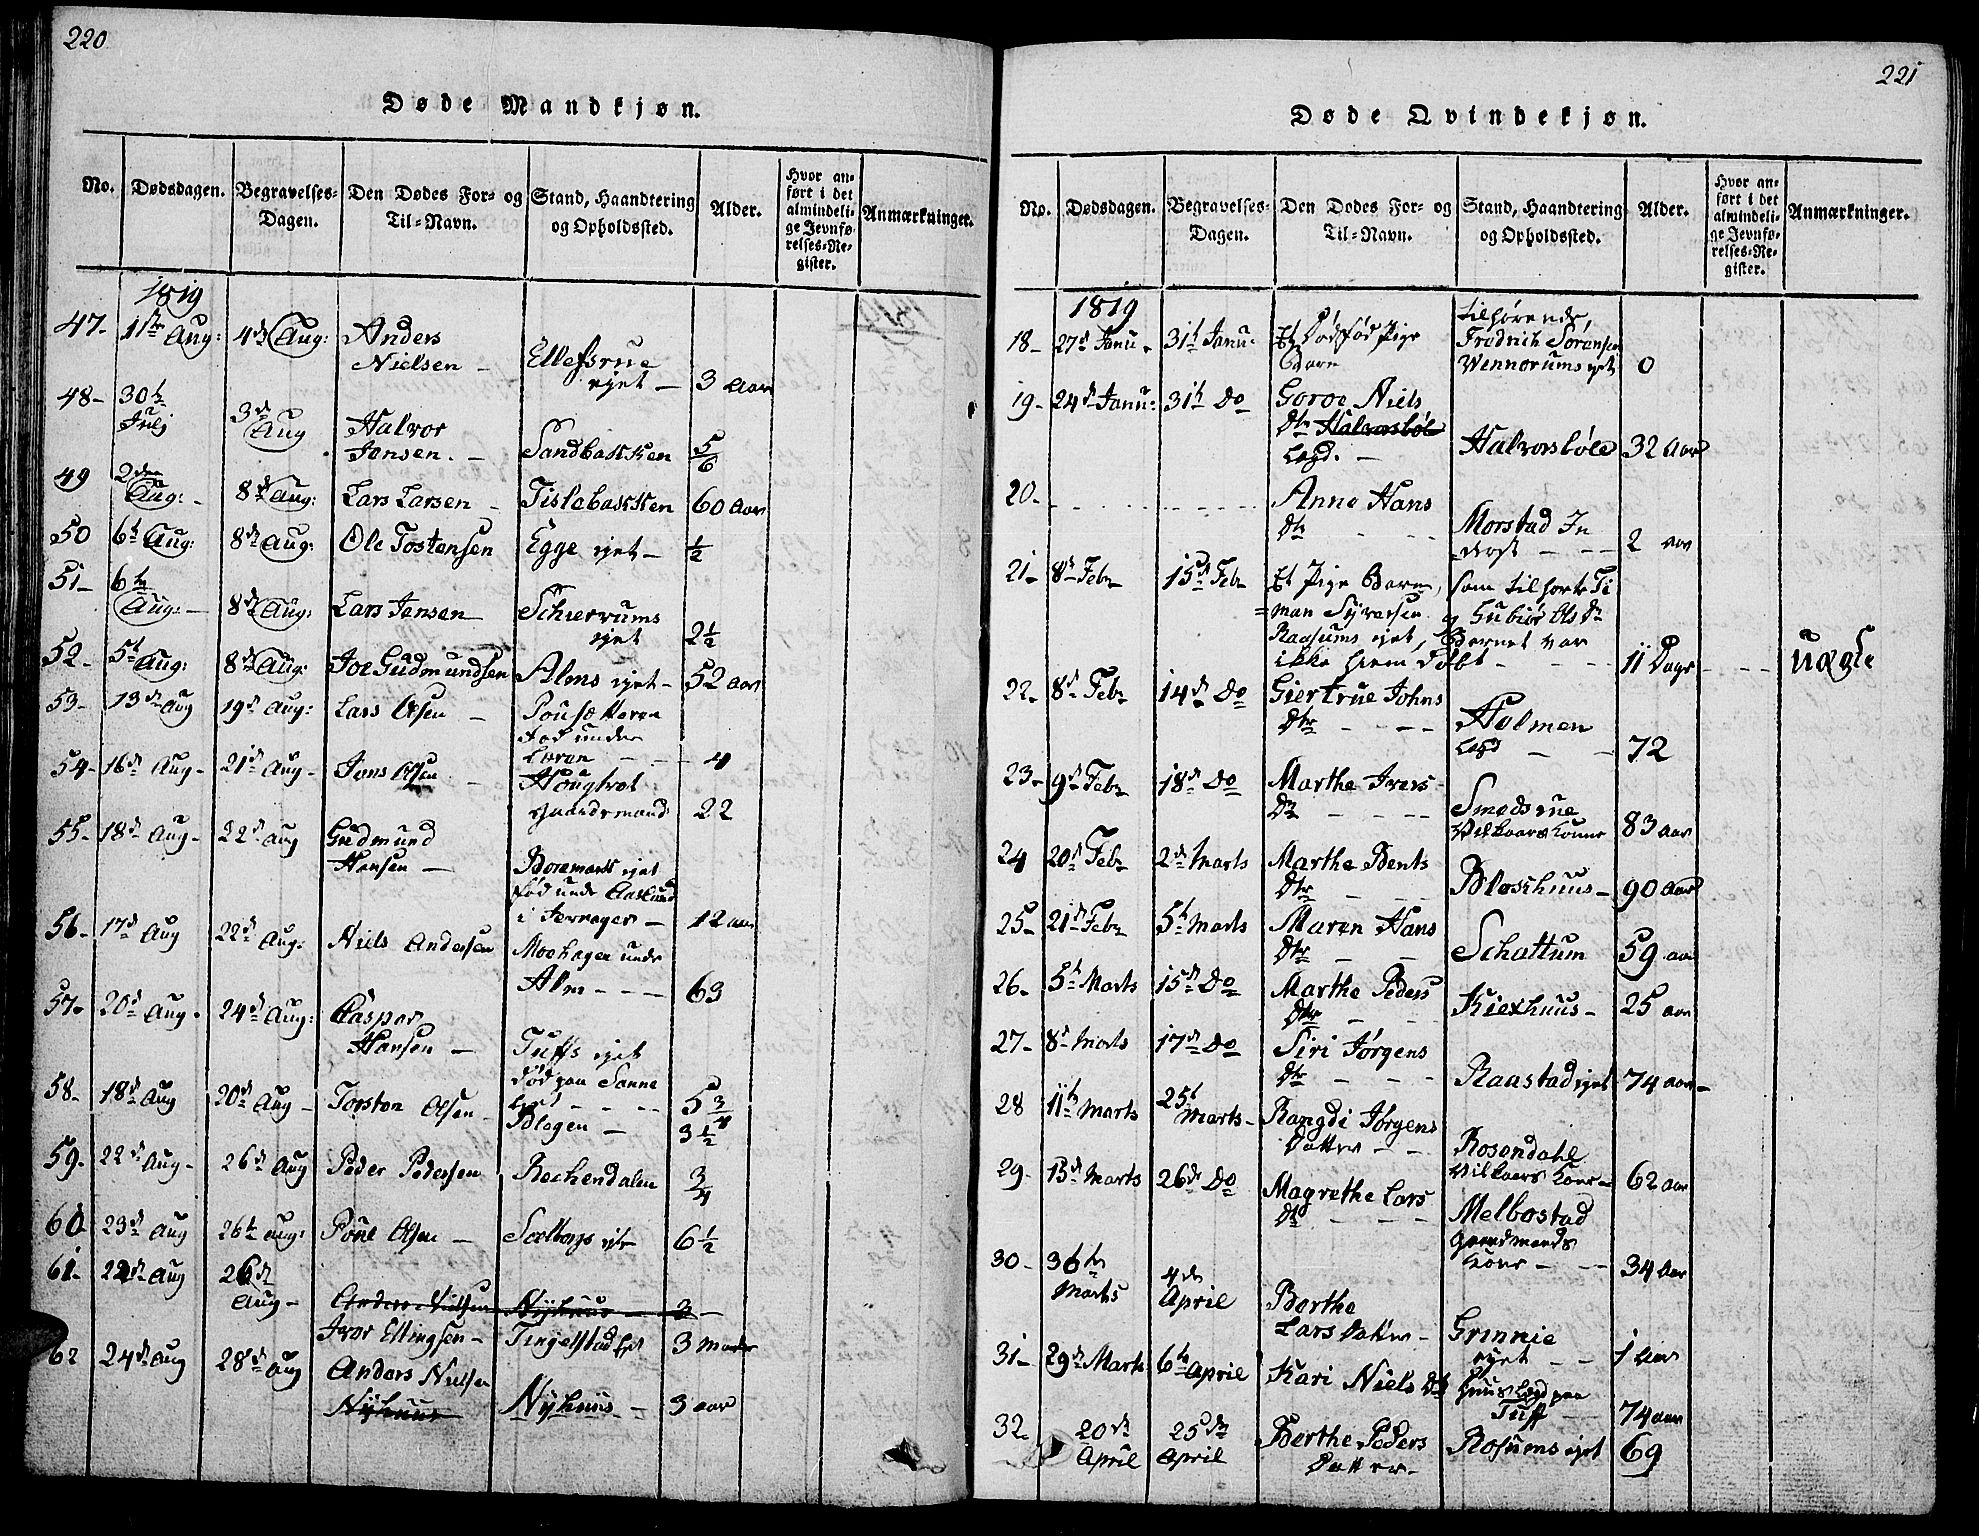 220
Døde Mandkjøn.
No. Dødsdagen. Begravelses-Dagen. Den Dødes For- og Til-Navn. Stand, Haandtering og Opholdssted. Alder. Hvor anført i det almindelige Jevnførelses-Register. Anmærkninger.
1819
47. 1ste Aug: 4de Aug: Anders Nielsen Ellefsrue ejet 3 Aar
48 30te Julj 3de Aug Halvor Jensen. Sandbakken 5/6
49 2den Aug: 8de Aug: Lars Larsen Tislebakken 60 Aar
50 6t Aug: 8de Aug: Ole Tostensen Egge ejet ½
51 6te Aug: 8de Aug: Lars Jensen Schierrums ejet 2½
52 5t Aug: 8de Aug: Joe Gudmundsen Alms ejet 52 aar
53 13de Aug 19de Aug: Lars Olsen
Fød under 4
54 16de Aug 21de Aug Jens Olsen gaardsmand 22
55 18de Aug 22de Aug Gudmund Hansen ejet
i Jevnager 12 aar
56 17de Aug 22de Aug: Niels Andersen Moehagen under Alm 63
57 20de Aug 24de Aug: Casper Hansen Tuffs ejet
død paa Sanne 5¾
58 18de Aug 20de Aug Torsten Olsen Blegen 3½
59 22de Aug 26de Aug Peder Pedersen Rechendalen ¾
60 23de Aug 26t aug: Poul Olsen 6½
61 22de Aug 26de Aug Anders Nielsen Nyhuus 3
Iver Ellingsen Tingelstad 3
62 24de Aug 28de Aug Anders Nielsen Nyhuus Nyhuus 3 aar
221
Døde Qvindekjøn.
No. Dødsdagen. Begravelses-Dagen. Den Dødes For- og Til-Navn. Stand, Haandtering og Opholdssted. Alder. Hvor anført i det almindelige Jevnførelses-Register. Anmærkninger.
1819
18 27de Janu. 31t Janu. Et Dødfød Pige Barn tilhørende, Fredrich Sørensen Wennerums ejet 0
19 24de Janu: 31t Do Goroe Niels Dtr Halvorsbøle Legd. Halvorsbøle 32 Aar
20 Anne Hans Dtr Morstad 2 aar
21 8de Febr 15de Feb Et Pige Barn, som tilhørte Ti=
=man Syversen og Gubiør Ols Dr
ejet, Barnet var
ikke hiem Døbt 11 Dage uægte
22 8de Febr 14de Do Giertrue Johns Dtr Holmen Legd 72
23 9de Febr 18de Do Marthe Ivers Dtr Smedsrue Vilkaars Koune 83 aar
24 20de Febr 2de Marts Marthe Bents Dtr Bleshuus 90 aar
25 21de Febr 5t Marts Maren Hans Dtr Schattum 59 aar
26 5t Marts 15de Do Marthe Peders Dtr Kiexhuus 25 aar
27 8de Marts 17de Do Siri Jørgens Dtr Raastad ejet 74 aar
28 11te Marts 25t Marts Rangdi Jørgens Datter Rosendahl Vilkaars Kone 62 aar
29 13de Marts 26de Do Magrethe Lars Dtr Melbostad Gaardmands Kone 34 Aar
30 30te Marts 4de April Berthe Lars Datter Grinnie ejet 1 Aar
31 29de Marts 6te April Kari Niels Dtr Huus Legd paa Tuff 74 aar
32 20de April 25de April Berthe Peders Datter Rosums ejet 69